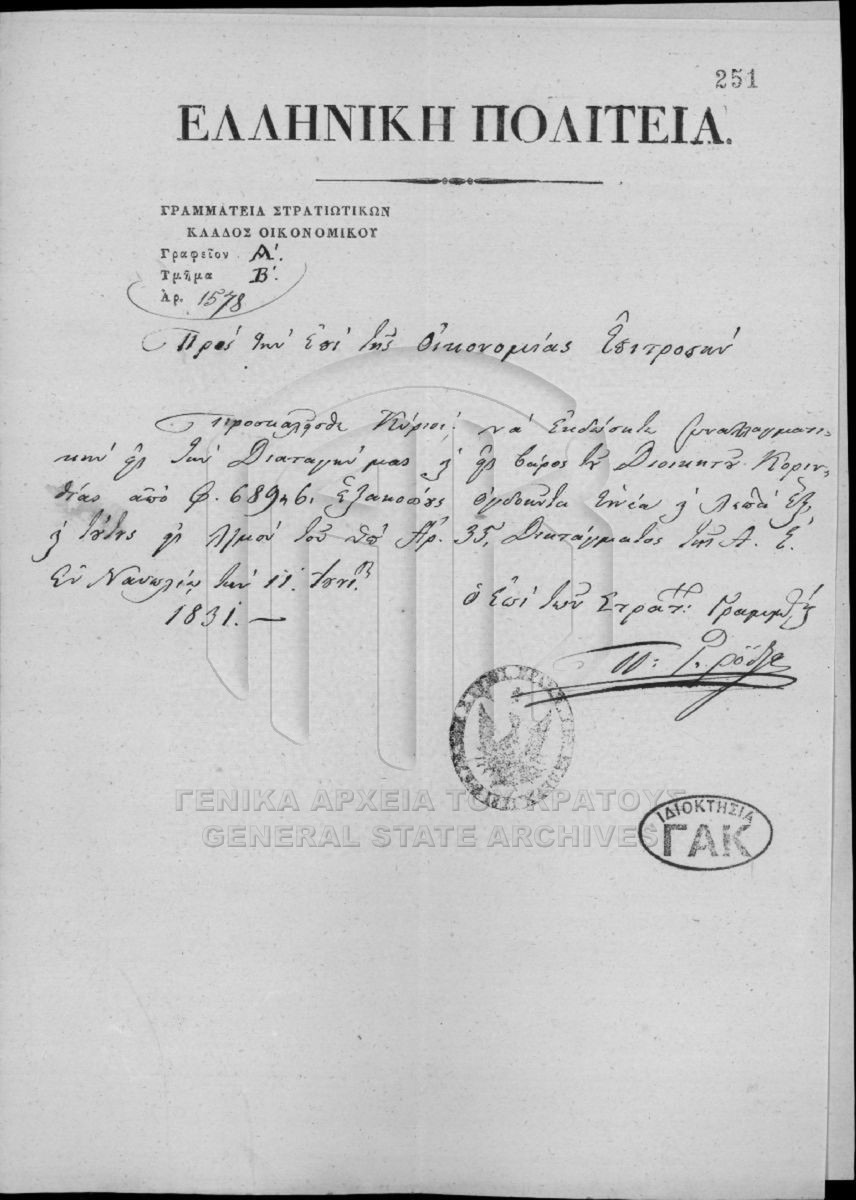 251
ΕΛΛΗΝΙΚΗ ΠΟΛΙΤΕΙΑ.
ΓΡΑΜΜΑΤΕΙΑ ΣΤΡΑΤΙΩΤΙΚΩΝ
ΚΛΑΔΟΣ ΟΙΚΟΝΟΜΙΚΟΥ
Γραφεῖον Α'.
Τμῆμα Β'.
Ἀρ. 1578
Πρὸς τὴν ἐπὶ τῆς Οἰκονομίας Ἐπιτροπὴν
Προσκαλεῖσθε Κύριοι, νὰ ἐκδώσητε συναλλαγματι-
κὴν εἰς τὴν Διαταγήν μας καὶ εἰς βάρος τοῦ Διοικητοῦ Κοριν-
θίας ἀπὸ Φ. 689 καὶ 6, ἑξακοσίους ὀγδοήντα ἐννέα καὶ λεπτὰ ἕξ,
καὶ τούτους εἰς τοῦ ὑπ' Ἀρ. 35, Διατάγματος τῆς Α. Ε.
Ἐν Ναυπλίῳ τὴν 11 Ἰουνίου
1831. —
ὁ Ἐπὶ τῶν Στρατ: Γραμματεὺς
Π: Γ. Ρόδιος
ΓΕΝΙΚΑ ΑΡΧΕΙΑ ΤΟΥ ΚΡΑΤΟΥΣ
GENERAL STATE ARCHIVES
ΙΔΙΟΚΤΗΣΙΑ
ΓΑΚ